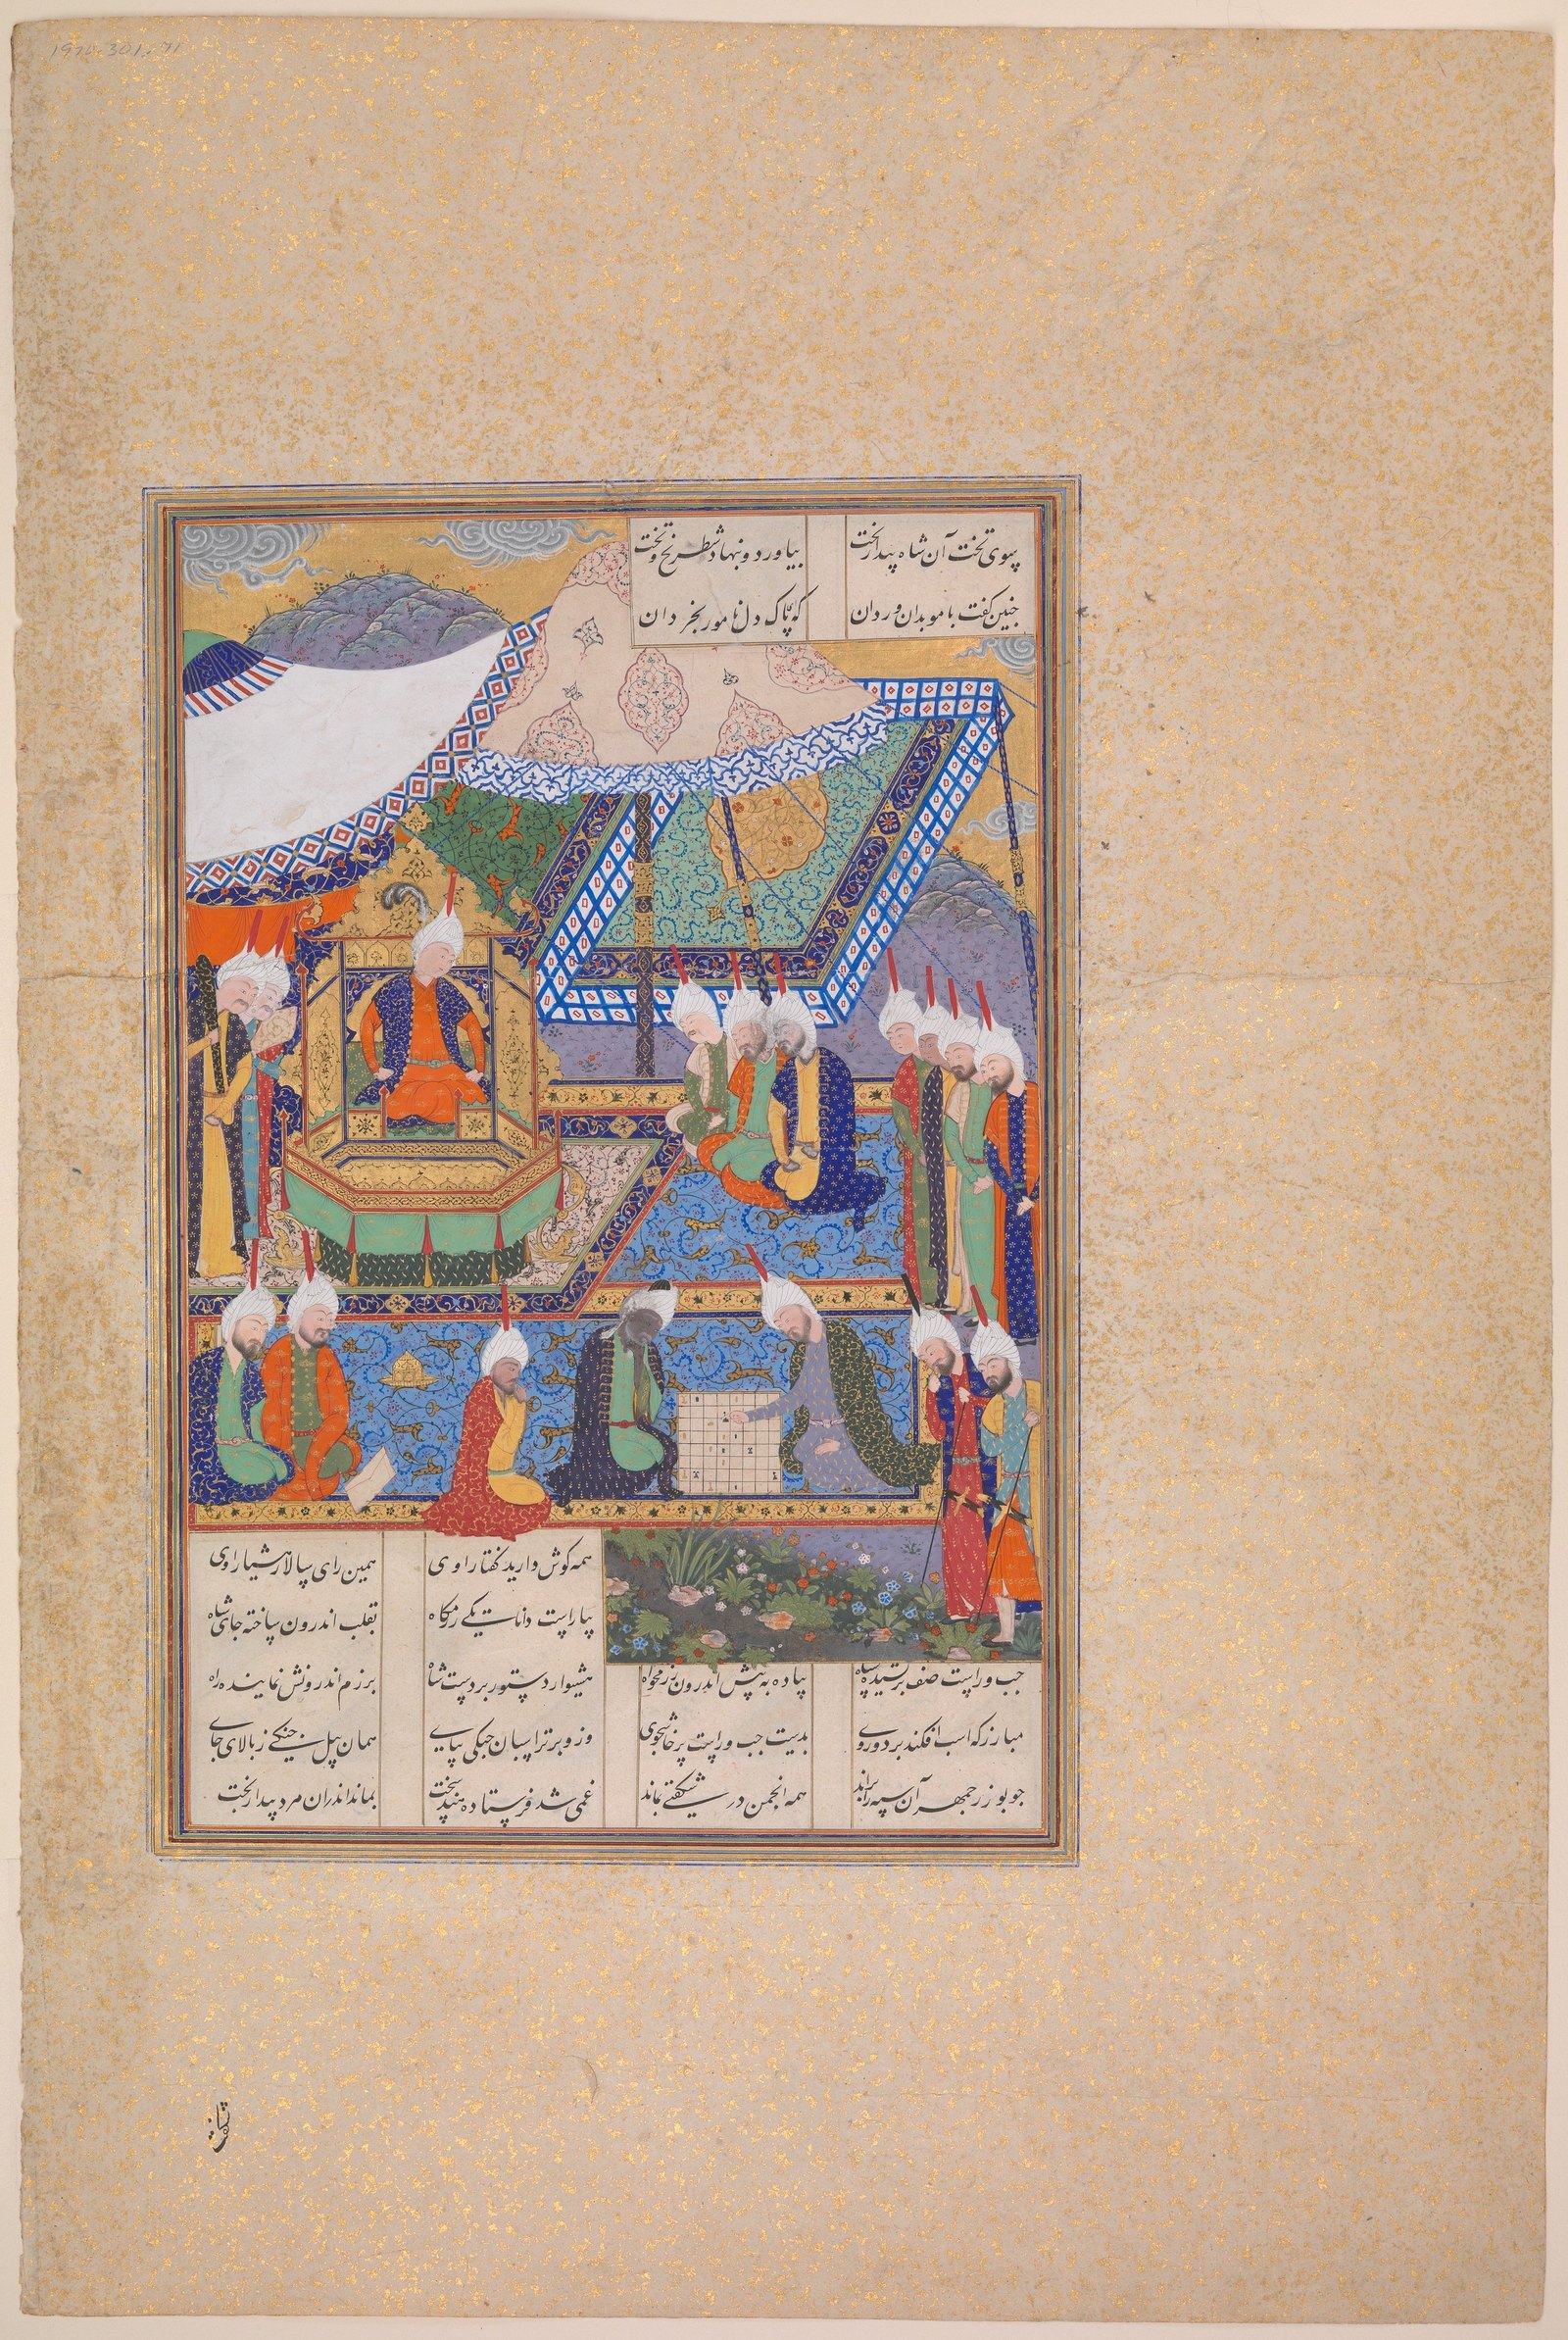 1970.301.71
بسوی تخت آن شاه بیدار بخت بیاورد و بنهاد شطرنج و تخت
چنین گفت با موبدان و ردان که ای پاک دل نامور بخردان
همه گوش دارید گفتار اوی همین رای سالار هشیار اوی
بیاراست دانا یکی رزمگاه بقلب اندرون ساخته جای شاه
چپ و راست صف برکشیده سپاه پیاده به پیش اندرون رزمخواه هشیوار دستور بر دست شاه برزم اندرونش نماینده راه
مبارز که اسب افکند بر دو روی بدست چپ و راست پرخاشجوی وزو برتر اسبان جنگی بپای همان پیل جنگی ز بالای جای
چو بوزرجمهر آن سپه را براند همه انجمن در شگفتی بماند غمی شد فرستاده هند سخت بماند اندران مرد بیدار بخت